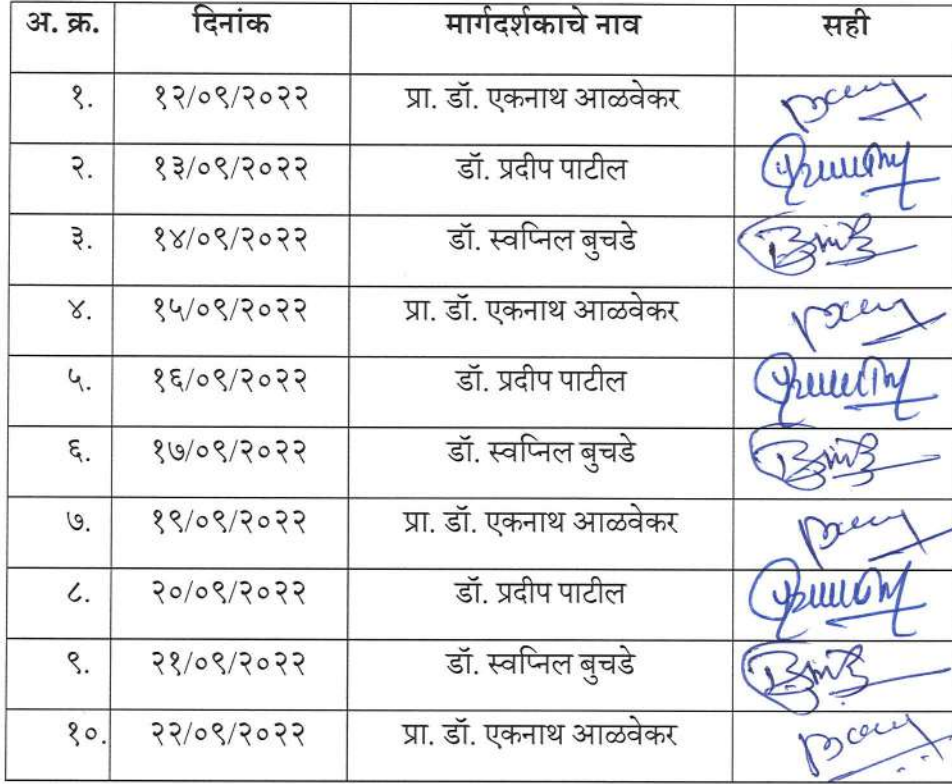 अ. क्र. दिनांक मार्गदर्शकाचे नाव सही
१. १२/०९/२०२२ प्रा. डॉ. एकनाथ आळवेकर
२. १३/०९/२०२२ डॉ. प्रदीप पाटील
३. १४/०९/२०२२ डॉ. स्वप्निल बुचडे
४. १५/०९/२०२२ प्रा. डॉ. एकनाथ आळवेकर
५. १६/०९/२०२२ डॉ. प्रदीप पाटील
६. १७/०९/२०२२ डॉ. स्वप्निल बुचडे
७. १९/०९/२०२२ प्रा. डॉ. एकनाथ आळवेकर
८. २०/०९/२०२२ डॉ. प्रदीप पाटील
९. २१/०९/२०२२ डॉ. स्वप्निल बुचडे
१०. २२/०९/२०२२ प्रा. डॉ. एकनाथ आळवेकर